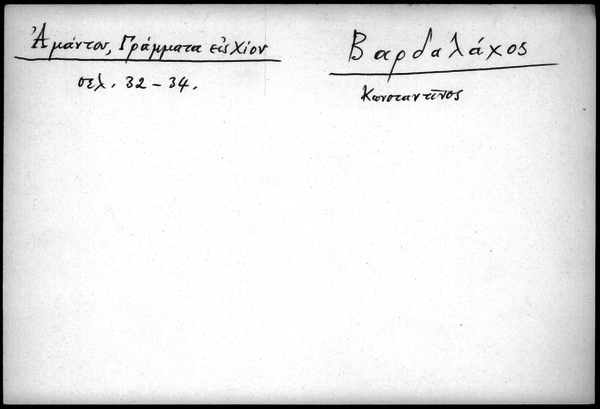 Ἀμάντου, Γράμματα εἰς Χίον
σελ. 32 – 34.
Βαρδαλάχος
Κωνσταντῖνος